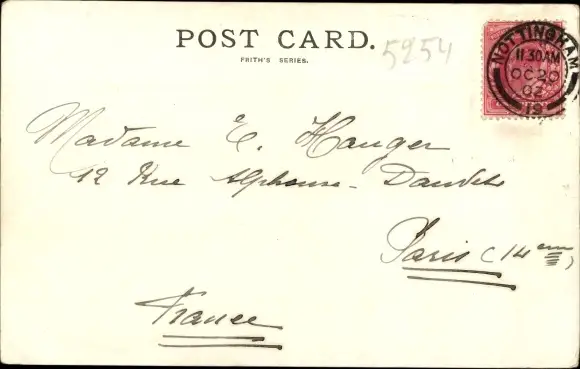 POST CARD.
FRITH'S SERIES.
5254
NOTTINGHAM
11 30AM
OC 20
02
19
Madame E. Hauger
12 Rue Alphonse-Daudet
Paris (14 em)
France